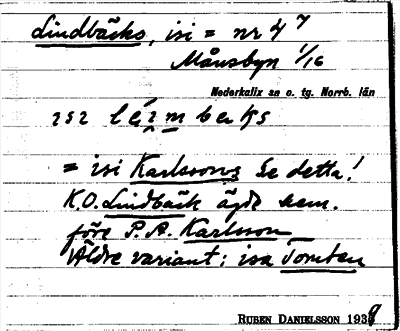 Lindbäcks, isi = nr 4⁷
Månsbyn 1/16
Nederkalix sn o. tg. Norrb. län
= isi Karlssons Se detta!
K.O. Lindbäck ägde hem.
före P.A. Karlsson
Äldre variant: isa Tomten
RUBEN DANIELSSON 1939